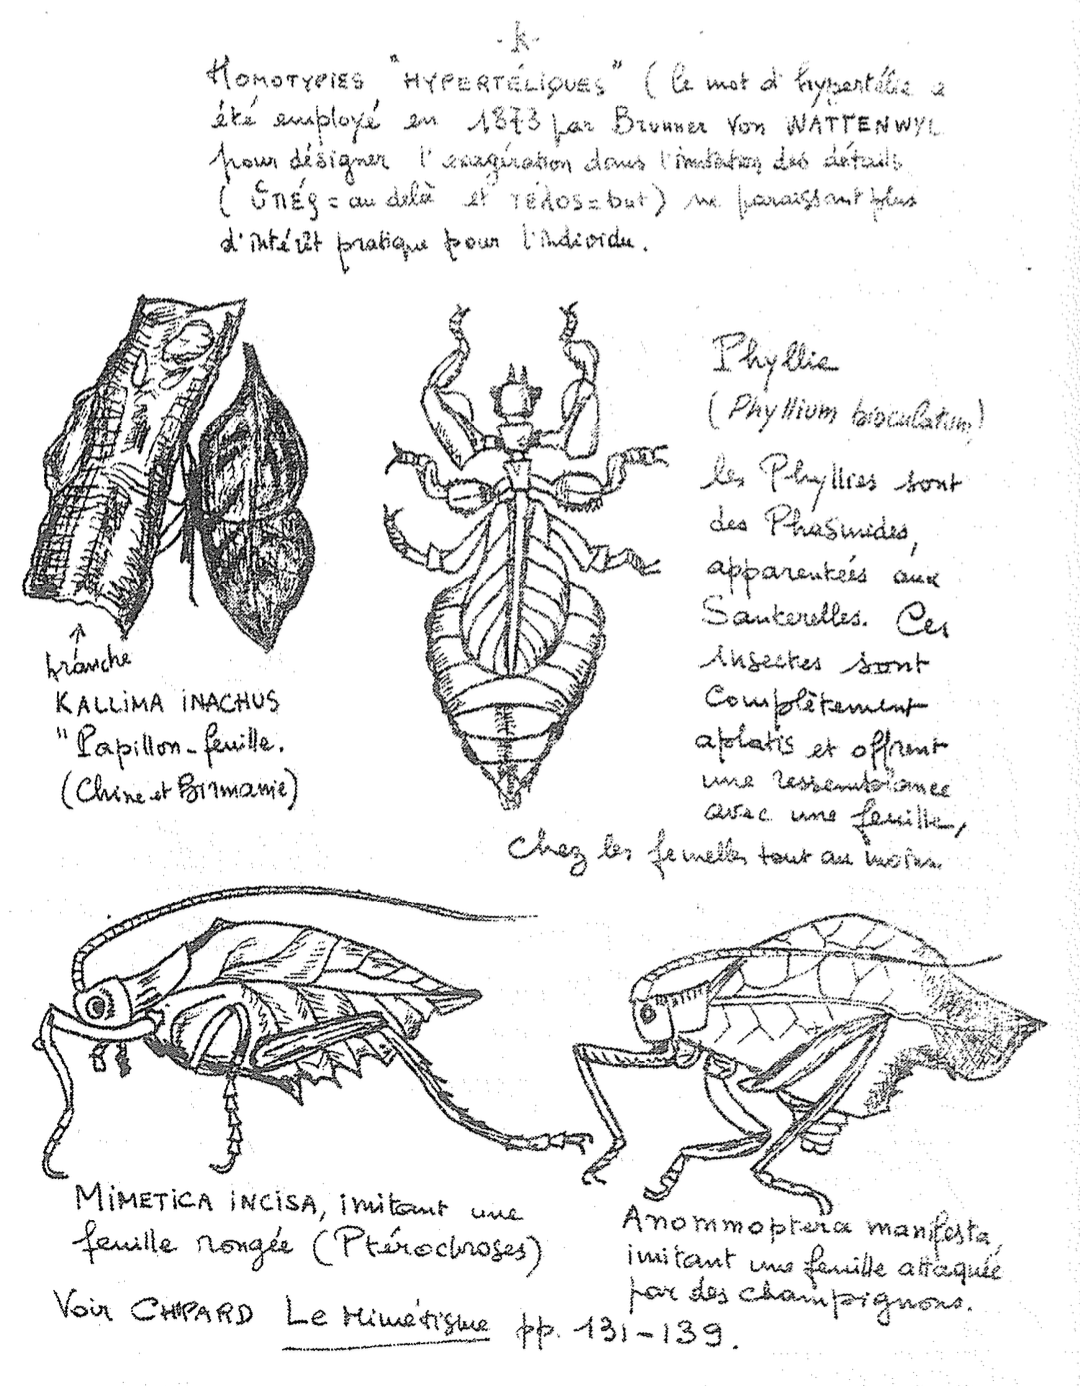 -k-
HOMOTYPIES "HYPERTÉLIQUES" (le mot d'hypertélie a
été employé en 1873 par Brunner Von WATTENWYL
pour désigner l'exagération dans l'imitation des détails
(ὑπέρ = au delà et ΤÉΛOS = but) ne paraissant plus
d'intérêt pratique pour l'individu.
Phyllie
(Phyllium bioculatum)
les Phyllies sont
des Phasmides,
apparentées aux
Sauterelles. Ces
insectes sont
complètement
aplatis et offrent
une ressemblance
avec une feuille,
chez les femelles tout au moins.
branche
KALLIMA INACHUS
"Papillon-feuille.
(Chine et Birmanie)
MIMETICA INCISA, imitant une
feuille rongée (Ptérochroses)
Anommoptera manifesta,
imitant une feuille attaquée
par des champignons.
Voir CHOPARD Le Mimétisme pp. 131-139.